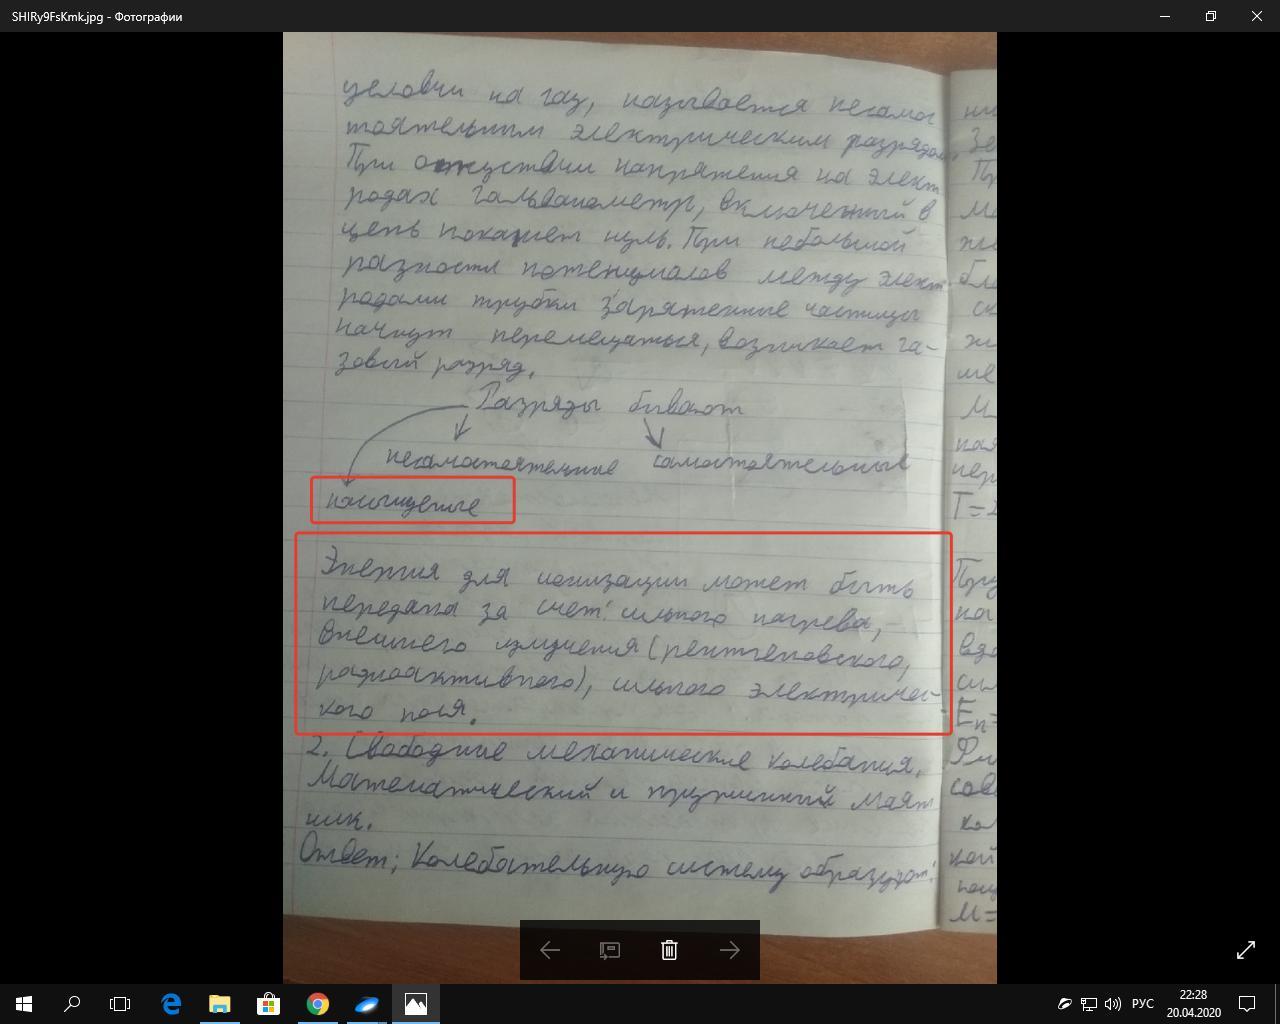 SHIRy9FsKmk.jpg - Фотографии
условии на газ, называется несамос
тоятельным электрическим разрядом.
При отсутствии напряжения на элект
родах гальванометр, включенный в
цепь покажет нуль. При небольшой
разности потенциалов между элект
родами трубки заряженные частицы
начнут перемещаться, возникает га-
зовый разряд.
Разряды бывают
несамостоятельные самостоятельные
насыщенные
Энергия для ионизации может быть
передана за счет: сильного нагрева,
внешнего излучения (рентгеновского,
радиоактивного), сильного электричес-
кого поля.
2. Свободные механические колебания.
Математический и пружинный маят
ник.
Ответ: Колебательную систему образуют:
T=2
Eп=
M=
РУС
22:28
20.04.2020